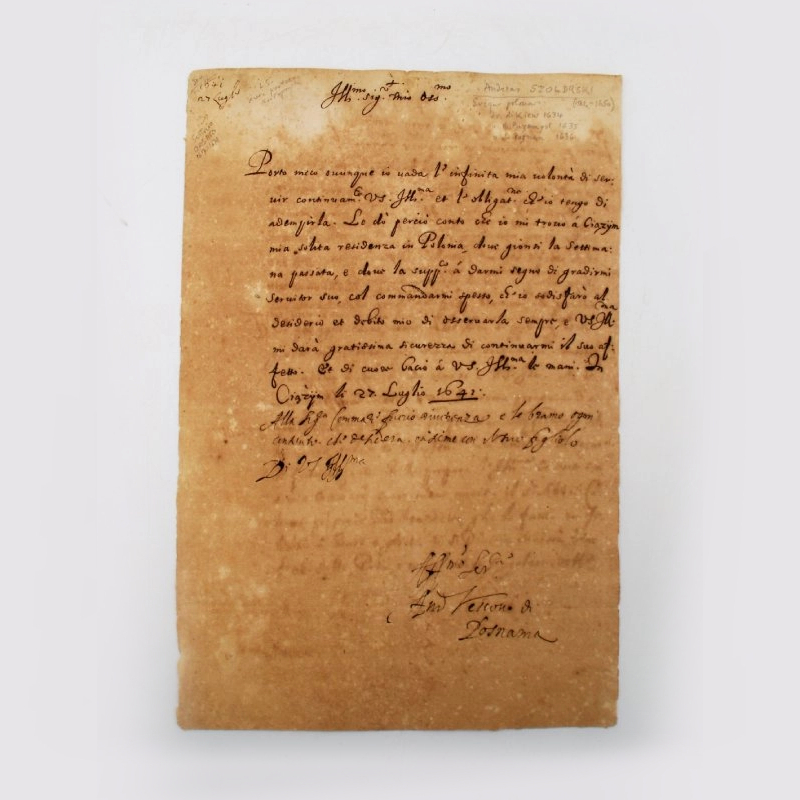 1641
27 Luglio
Andreas SZOLDRSKI
in Kiew 1634
1635
1636
Ill.mo sig.r mio oss.mo
Porto meco ovunque io vada l' infinita mia volontà di ser-
vir continuam.te VS. Ill.ma et l' obligat.ne ch' io tengo di
adempirla. Le dò perciò conto che io mi trovo à Ciązyn
mia solita residenza in Polonia, dove gionsi la settima-
na passata, e dove la supp.co à darmi segno di gradirmi
servitor suo, col commandarmi spesso, ch' io sodisfarò al
desiderio et debito mio di osservarla sempre, e VS. Ill.ma
mi darà gratissima sicurezza di continuarmi il suo af-
fetto. Et di cuore bacio à VS. Ill.ma le mani. In
Ciązyn li 27. Luglio 1641.
Alla Sig.ra faccio riverenza e le bramo ogni
contento che desidera, insieme con figliolo
Di VS Ill.ma
Aff.mo Ser.
And Vescovo di
Posnania